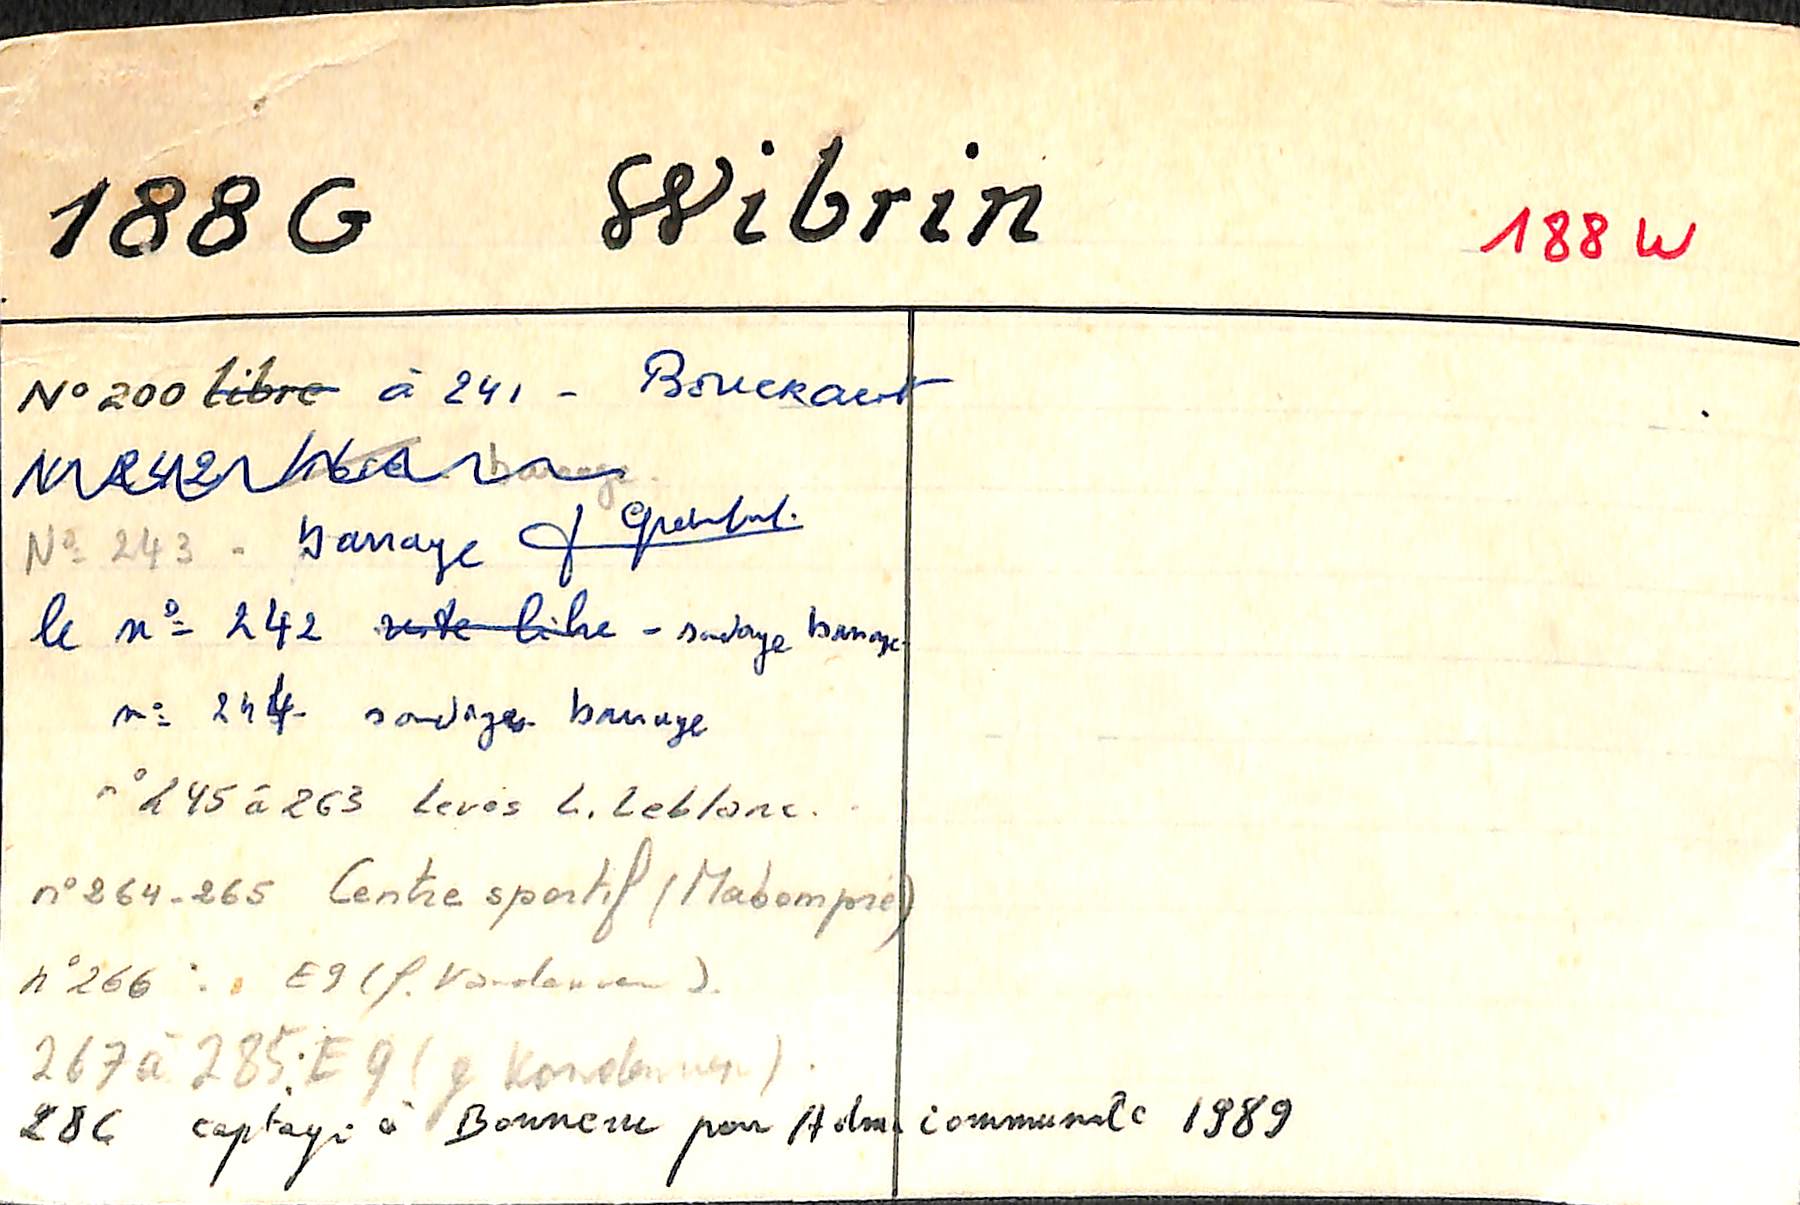 188 G Wibrin 188 W
N° 200 libre à 241 - Bouckaert
N° 242 libre barrage.
N° 243 - barrage
le n° 242 reste libre - sondage barrage
n° 244 sondages barrage
n° 245 à 263 levés L. Leblanc.
n° 264-265 Centre sportif (Mabompré)
n° 266 : E9 (J. Vandenven).
267 à 285 : E9 (J Vandenven).
286 captage à Bonnerue par Adm. communale 1989